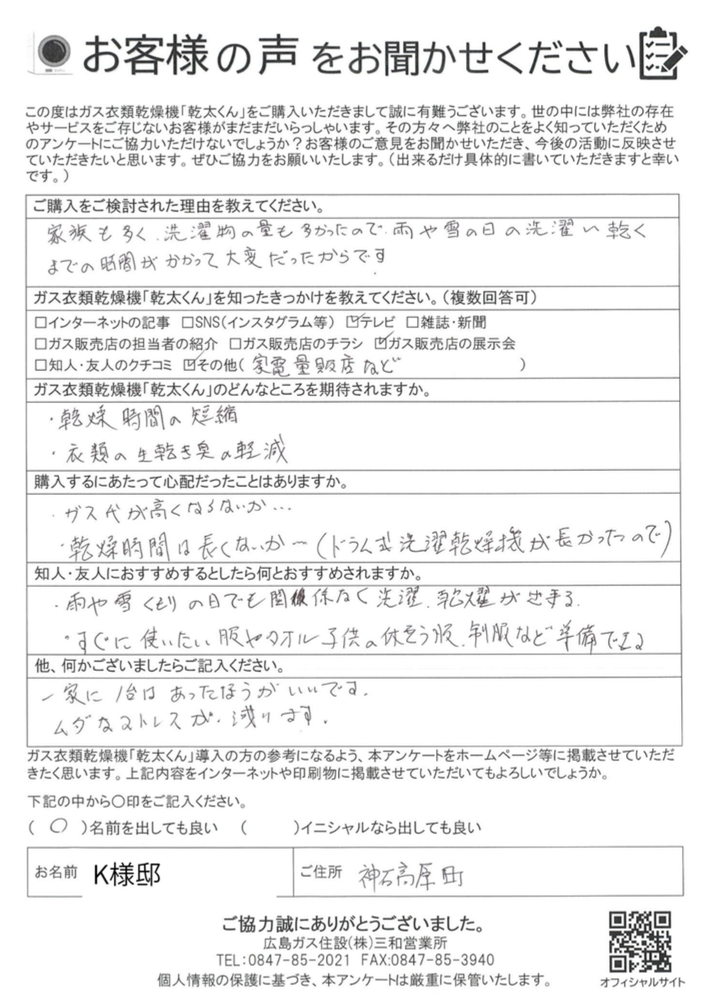 お客様の声をお聞かせください
この度はガス衣類乾燥機「乾太くん」をご購入いただきまして誠に有難うございます。世の中には弊社の存在
やサービスをご存じないお客様がまだまだいらっしゃいます。その方々へ弊社のことをよく知っていただくため
のアンケートにご協力いただけないでしょうか?お客様のご意見をお聞かせいただき、今後の活動に反映させ
ていただきたいと思います。ぜひご協力をお願いいたします。（出来るだけ具体的に書いていただきますと幸い
です。）
ご購入をご検討された理由を教えてください。
家族も多く、洗濯物の量も多かったので、雨や雪の日の洗濯い乾く
までの時間がかかって大変だったからです
ガス衣類乾燥機「乾太くん」を知ったきっかけを教えてください。（複数回答可）
□インターネットの記事 □SNS(インスタグラム等) ☑テレビ □雑誌・新聞
□ガス販売店の担当者の紹介 □ガス販売店のチラシ ☑ガス販売店の展示会
□知人・友人のクチコミ ☑その他( 家電量販店など )
ガス衣類乾燥機「乾太くん」のどんなところを期待されますか。
・乾燥時間の短縮
・衣類の生乾き臭の軽減
購入するにあたって心配だったことはありますか。
・ガス代が高くなるないか…
・乾燥時間は長くないか〜(ドラム式洗濯乾燥機が長かったので)
知人・友人におすすめするとしたら何とおすすめされますか。
・雨や雪くもりの日でも関係なく洗濯、乾燥が出来る
・すぐに使いたい服やタオル子供の体そう服、制服など準備できる
他、何かございましたらご記入ください。
一家に1台はあったほうがいいです。
ムダなストレスが、減ります。
ガス衣類乾燥機「乾太くん」導入の方の参考になるよう、本アンケートをホームページ等に掲載させていただ
きたく思います。上記内容をインターネットや印刷物に掲載させていただいてもよろしいでしょうか。
下記の中から○印をご記入ください。
( ○ )名前を出しても良い ( )イニシャルなら出しても良い
お名前 K様邸 ご住所 神石高原町
ご協力誠にありがとうございました。
広島ガス住設(株)三和営業所
TEL:0847-85-2021 FAX:0847-85-3940
個人情報の保護に基づき、本アンケートは厳重に保管いたします。
オフィシャルサイト